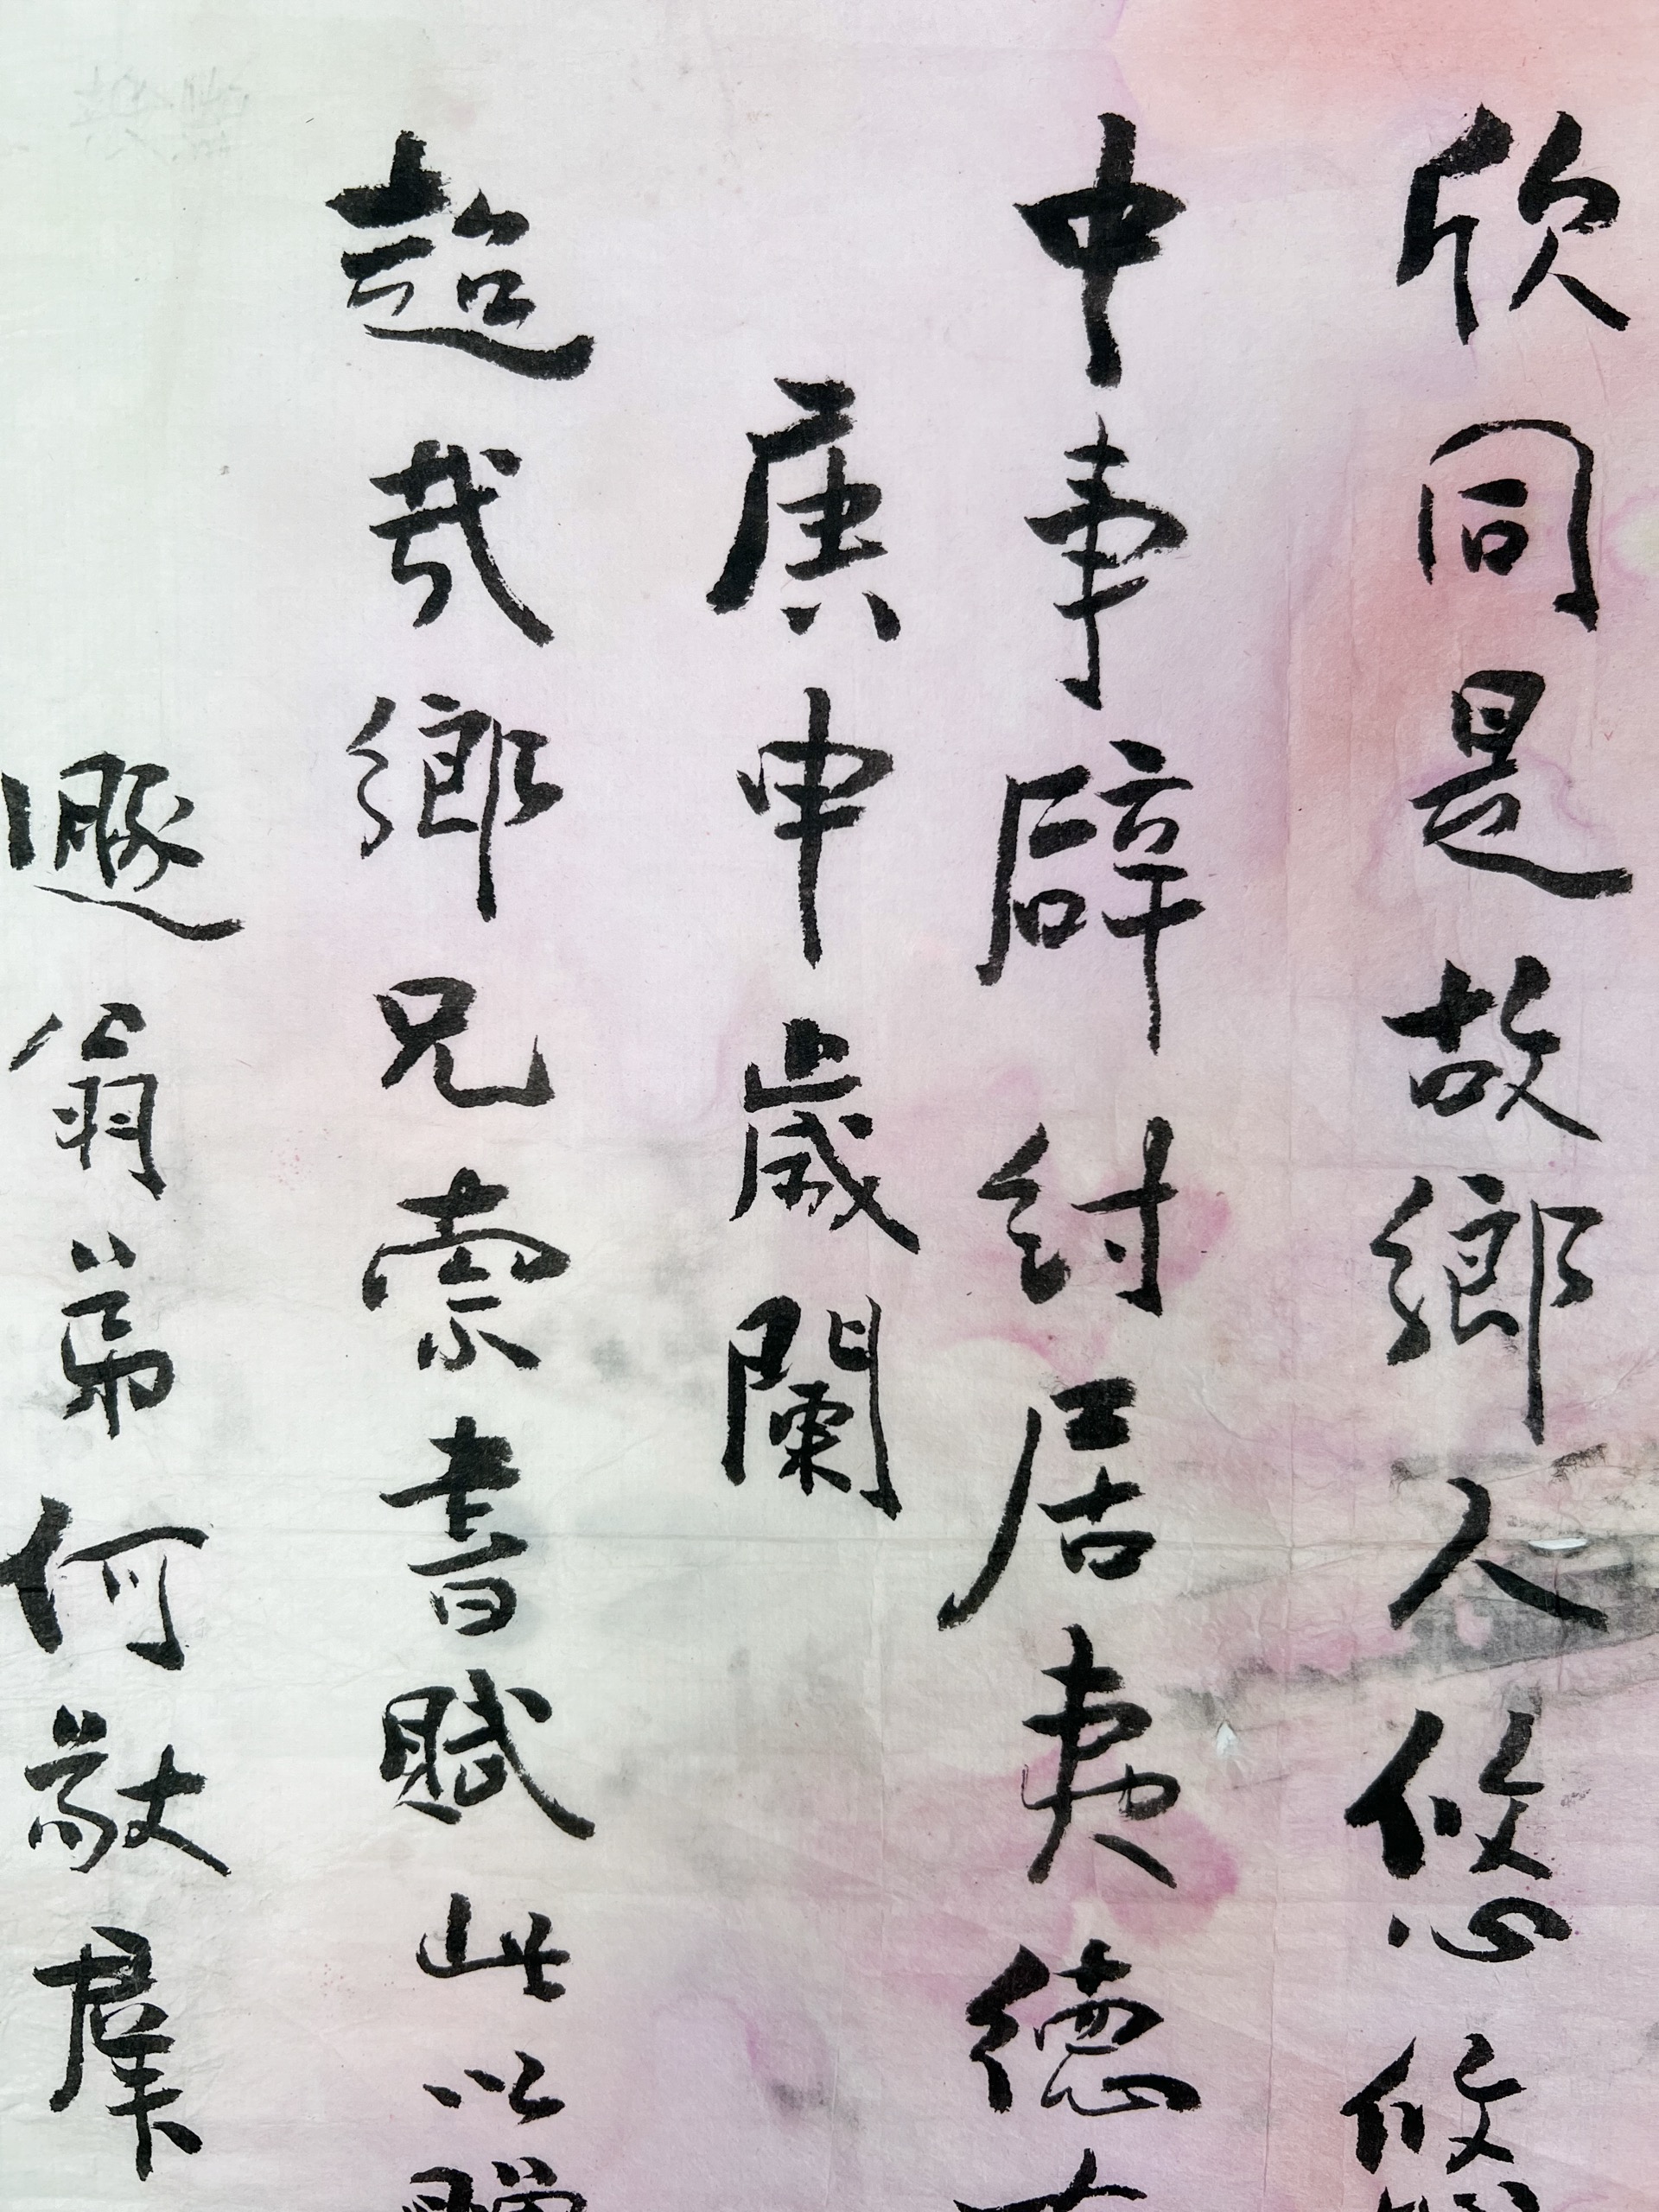 欣同是故鄉人悠悠
中事辟紂居夷德
庚申歲闌
超哉鄉兄索書賦此以贈
遯翁弟何敬群